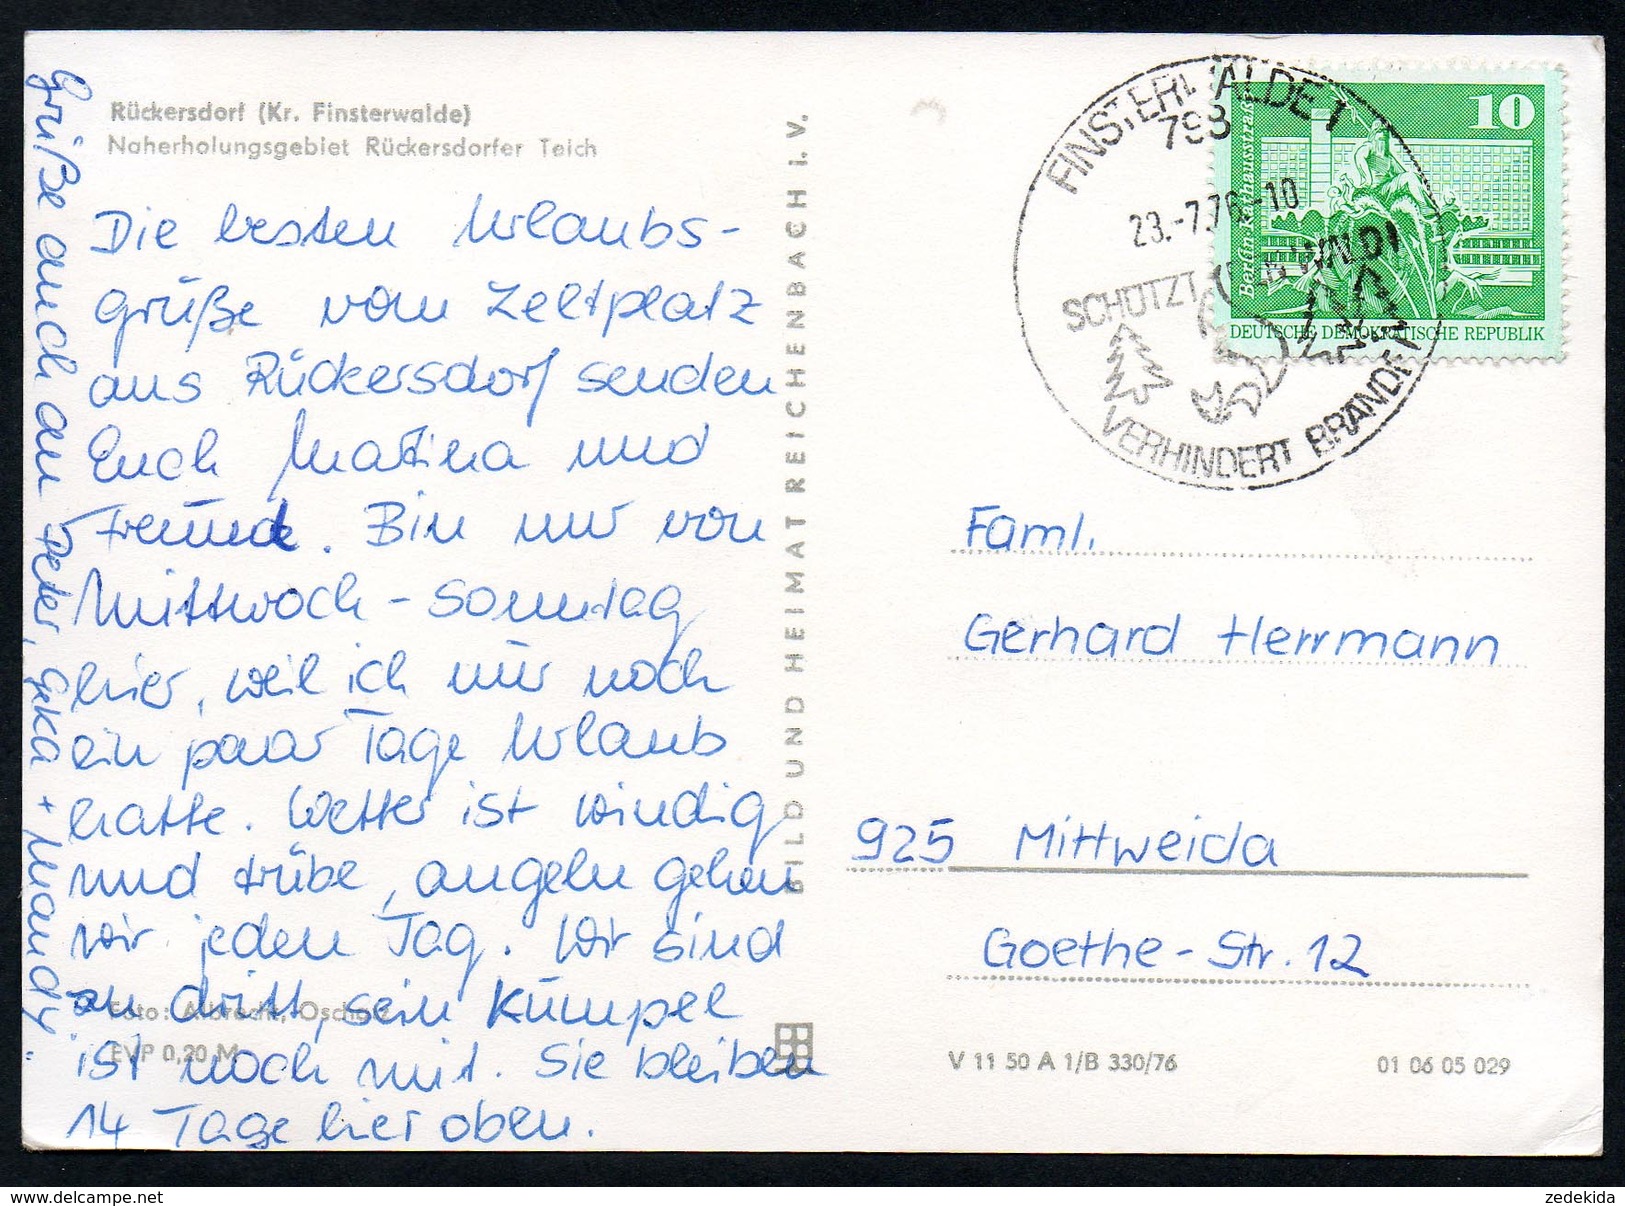 Rückersdorf (Kr. Finsterwalde)
Naherholungsgebiet Rückersdorfer Teich
Die besten Urlaubs-
grüße vom Zeltplatz
aus Rückersdorf senden
Euch Matina und
Freunde. Bin nur von
Mittwoch - Sonntag
hier, weil ich nur noch
ein paar Tage Urlaub
hatte. Wetter ist windig
und trübe, angeln gehen
wir jeden Tag. Wir sind
zu dritt, sein Kumpel
ist noch mit. Sie bleiben
14 Tage hier oben.
Grüße auch an Peter, Geka + Mandy.
Foto: Albrecht, Oschatz
EVP 0,20 M
BILD UND HEIMAT REICHENBACH I. V.
FINSTERWALDE 1
798
23.-7.78-10
SCHÜTZT DEN WALD!
VERHINDERT BRÄNDE!
10
Berlin Alexanderplatz
DEUTSCHE DEMOKRATISCHE REPUBLIK
Faml.
Gerhard Herrmann
925 Mittweida
Goethe-Str. 12
V 11 50 A 1/B 330/76
01 06 05 029
delcampe.net
zedekida